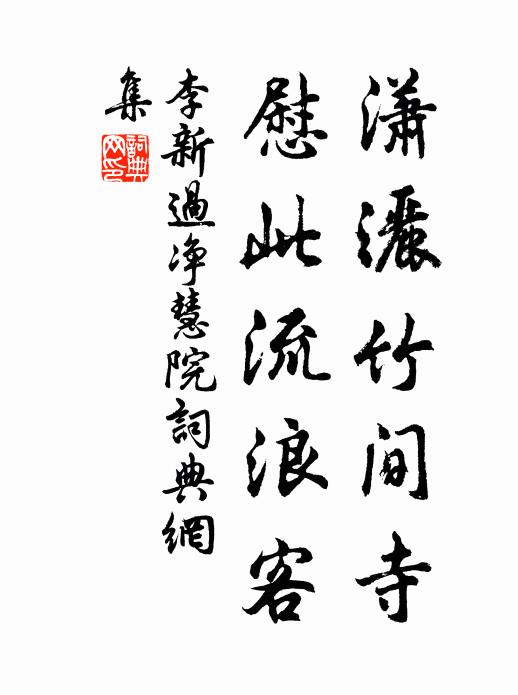 瀟灑竹間寺
慰此流浪客
李新過净慧院詞典網
集
詞典网印